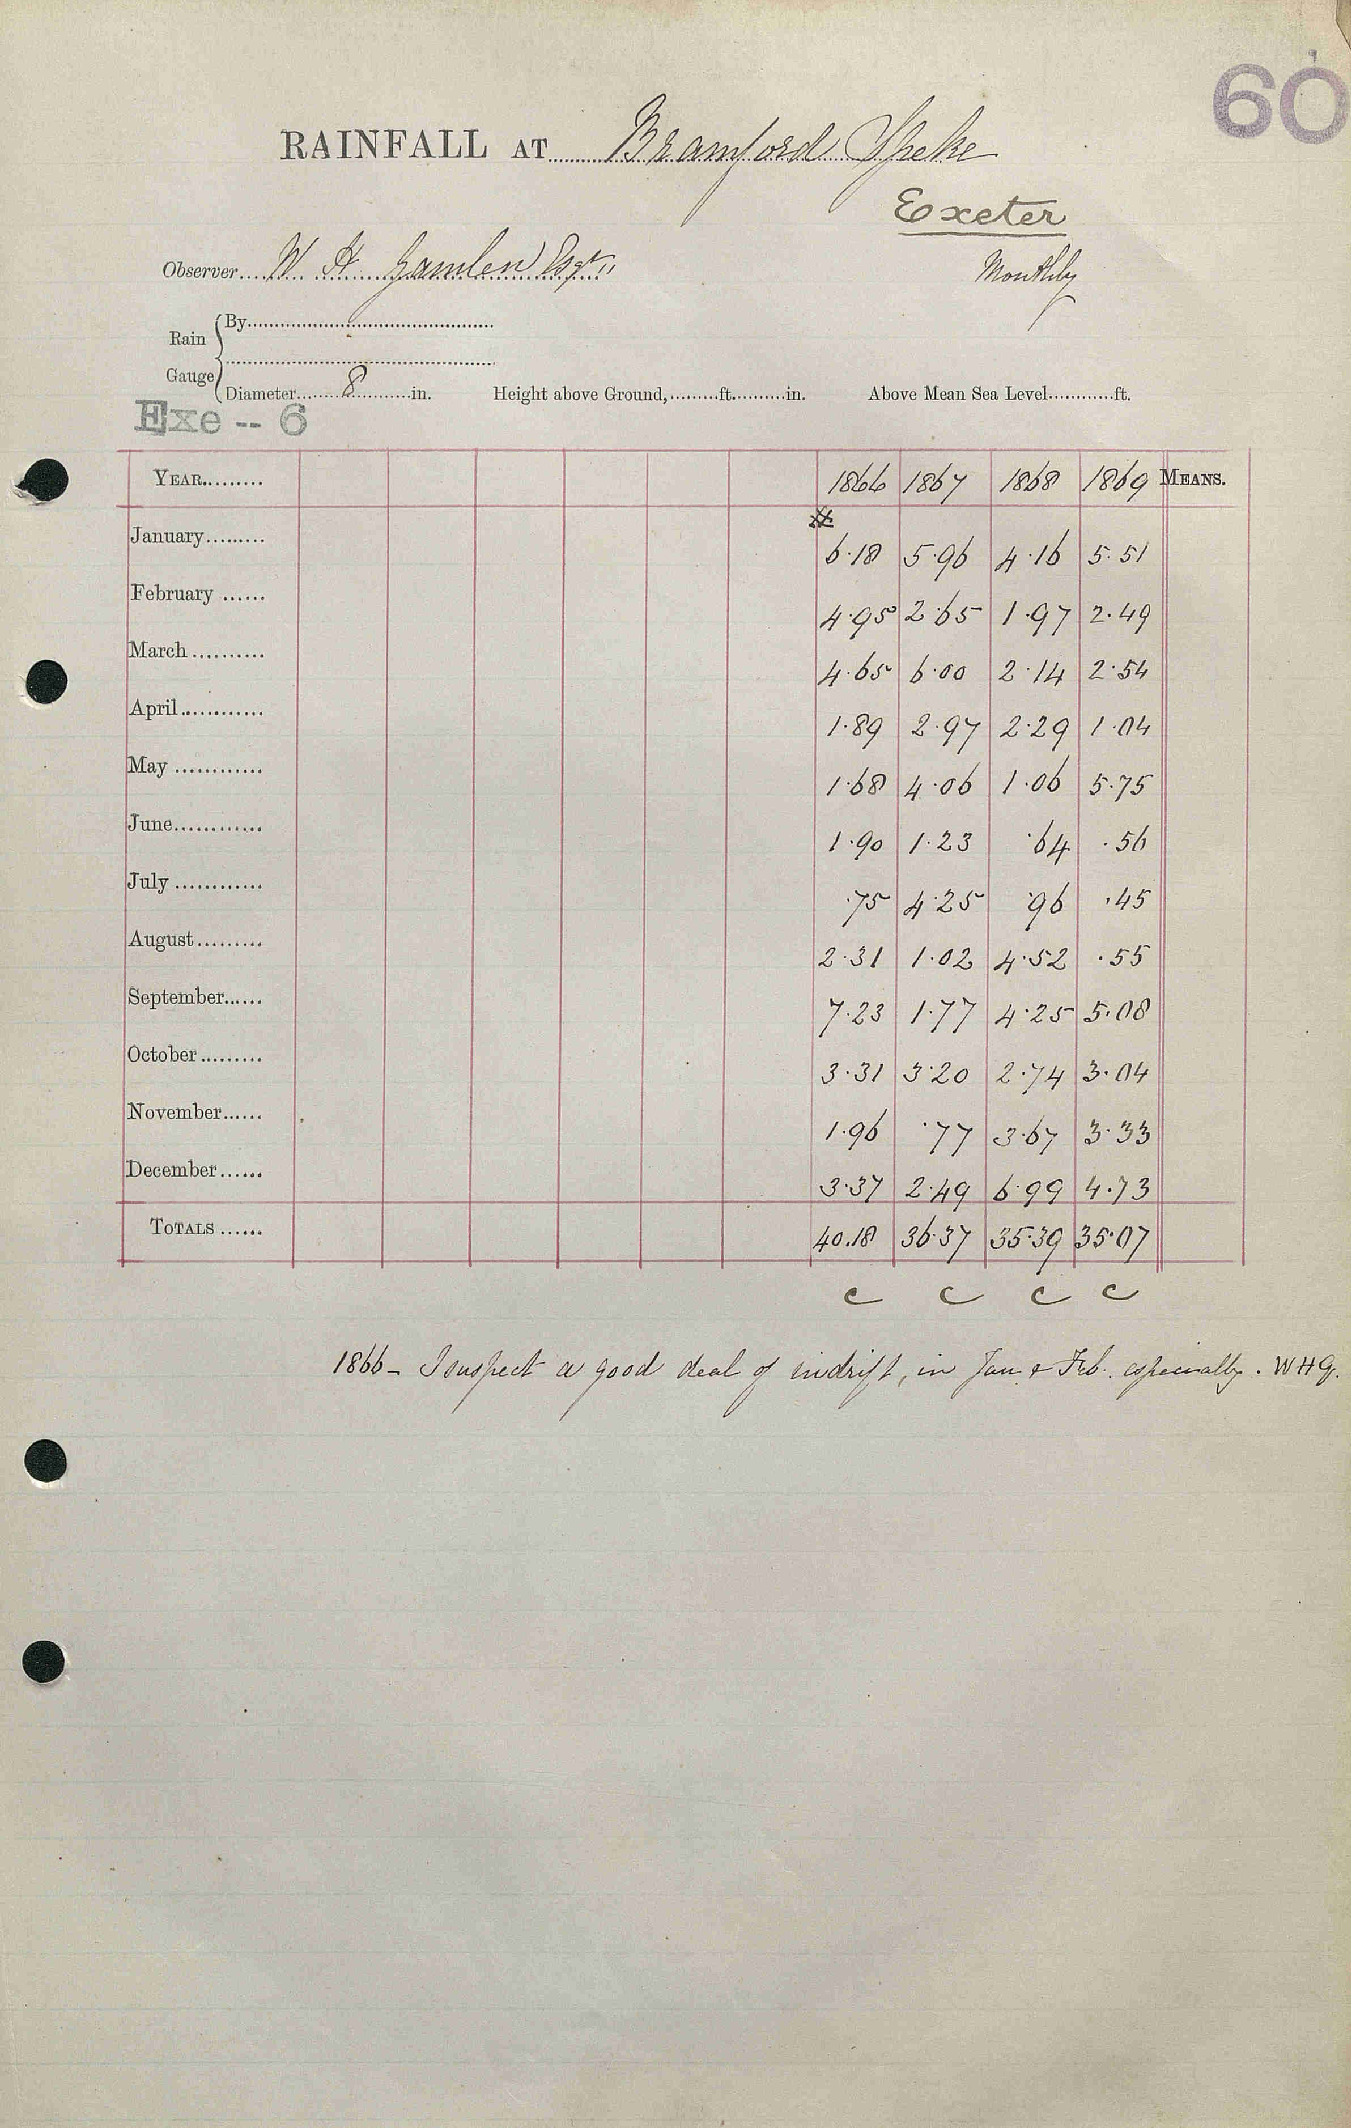 60
RAINFALL AT Bramford Speke
Exeter
Observer W H Gamlen Esqre
Monthly
Rain Gauge
By
Diameter 8 in. Height above Ground, ft. in. Above Mean Sea Level ft.
Exe -- 6
YEAR 1866 1867 1868 1869 MEANS.
January 6.18 5.96 4.16 5.51
February 4.95 2.65 1.97 2.49
March 4.65 6.00 2.14 2.54
April 1.89 2.97 2.29 1.04
May 1.68 4.06 1.06 5.75
June 1.90 1.23 .64 .56
July .75 4.25 .96 .45
August 2.31 1.02 4.52 .55
September 7.23 1.77 4.25 5.08
October 3.31 3.20 2.74 3.04
November 1.96 .77 3.67 3.33
December 3.37 2.49 6.99 4.73
TOTALS 40.18 36.37 35.39 35.07
c c c c
1866 - I suspect a good deal of indrift, in Jan. & Feb. especially. WHG.